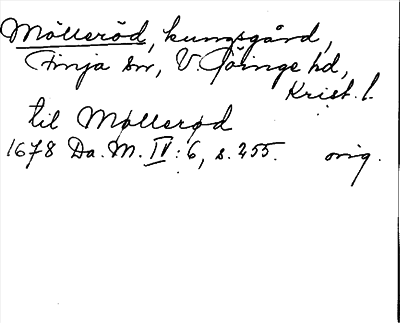 Mölleröd, kungsgård,
Finja sn, V. Göinge hd,
Krist. l.
til Møllerød
1678 Da. M. IV: 6, s. 255. orig.